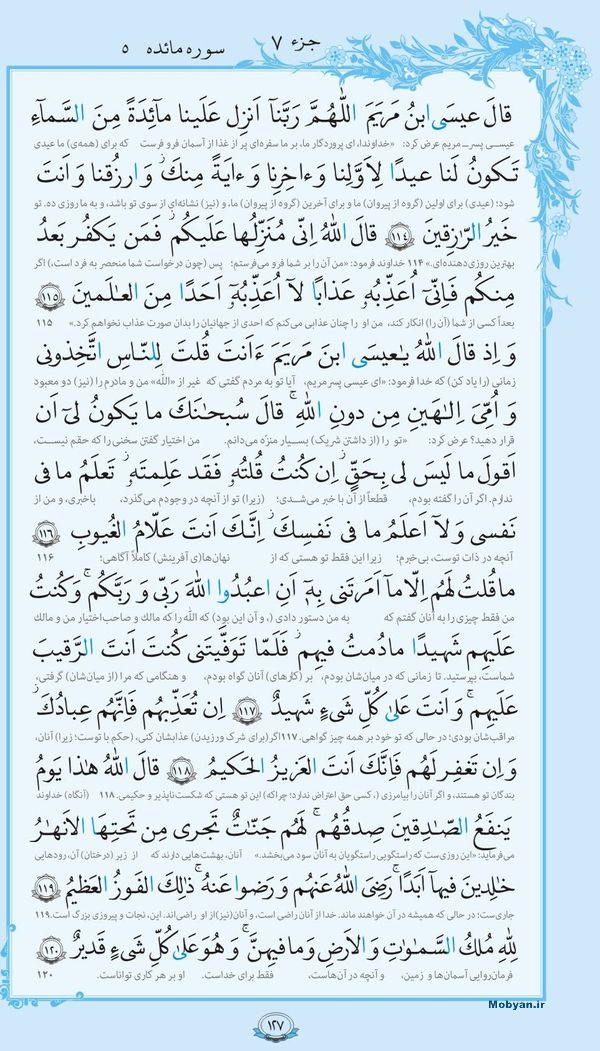 جزء ۷
سوره مائده ۵
قالَ عيسَى ابنُ مَريَمَ اللّٰهُمَّ رَبَّنآ اَنزِل عَلَينا مآئِدَةً مِنَ السَّمآءِ
عیسـی پسرـ مریم عرض کرد: «خداوندا، ای پروردگار ما، بر ما سفره‌ای پر از غذا از آسمان فرو فرست که برای (همه‌ی) ما عیدی
تَكونُ لَنا عيدًا لِاَوَّلِنا وَءاخِرِنا وَءايَةً مِنكَ ۖ وَارزُقنا وَاَنتَ
شود: (عیدی) برای اولین (گروه از پیروان) ما و برای آخرین (گروه از پیروان) ما، و (نیز) نشانه‌ای از سوی تو باشد، و به ما روزی ده. تو
خَيرُ الرّٰزِقينَ ﴿١١٤﴾ قالَ اللهُ اِنّى مُنَزِّلُها عَلَيكُم ۖ فَمَن يَكفُر بَعدُ
بهترین روزی‌دهنده‌ای.» ۱۱۴ خداوند فرمود: «من آن را بر شما فرو می‌فرستم؛ پس (چون درخواست شما منحصر به فرد است،) اگر
مِنكُم فَاِنّىٓ اُعَذِّبُهٗ عَذابًا لآ اُعَذِّبُهٗٓ اَحَدًا مِنَ العٰلَمينَ ﴿١١٥﴾
بعداً کسی از شما (آن را) انکار کند، من او را چنان عذابی می‌کنم که احدی از جهانیان را بدان صورت عذاب نخواهم کرد.» ۱۱۵
وَاِذ قالَ اللهُ يٰعيسَى ابنَ مَريَمَ ءَاَنتَ قُلتَ لِلنّاسِ اتَّخِذونى
زمانی (را یاد کن) که خدا فرمود: «ای عیسی پسر مریم، آیا تو به مردم گفتی که غیر از «الله» من و مادرم را (نیز) دو معبود
وَاُمِّىَ اِلٰهَينِ مِن دونِ اللهِ ۖ قالَ سُبحٰنَكَ ما يَكونُ لىٓ اَن
قرار دهید؟ عرض کرد: «تو را (از داشتن شریک) بسیار منزّه می‌دانم. من اختیار گفتن سخنی را که حقم نیست،
اَقولَ ما لَيسَ لى بِحَقٍّ ۚ اِن كُنتُ قُلتُهٗ فَقَد عَلِمتَهٗ ۚ تَعلَمُ ما فى
ندارم. اگر آن را گفته بودم، قطعاً از آن با خبر می‌شدی؛ (زیرا) تو از آنچه در وجودم می‌گذرد، باخبری، و من از
نَفسى وَلآ اَعلَمُ ما فى نَفسِكَ ۚ اِنَّكَ اَنتَ عَلّامُ الغُيوبِ ﴿١١٦﴾
آنچه در ذات توست، بی‌خبرم؛ زیرا این فقط تو هستی که از نهان‌ها(ی آفرینش) کاملاً آگاهی؛ ۱۱۶
ما قُلتُ لَهُم اِلّا مآ اَمَرتَنى بِهٖٓ اَنِ اعبُدُوا اللهَ رَبّى وَرَبَّكُم ۚ وَكُنتُ
من فقط چیزی را به آنان گفتم که به من دستور دادی (، و آن این بود) که الله را که مالک و صاحب‌اختیار من و مالک
عَلَيهِم شَهيدًا مادُمتُ فيهِم ۖ فَلَمّا تَوَفَّيتَنى كُنتَ اَنتَ الرَّقيبَ
شماست، بپرستید. تا زمانی که در میان‌شان بودم، بر (کارهای) آنان گواه بودم، و هنگامی که مرا (از میان‌شان) گرفتی،
عَلَيهِم ۚ وَاَنتَ عَلىٰ كُلِّ شَىءٍ شَهيدٌ ﴿١١٧﴾ اِن تُعَذِّبهُم فَاِنَّهُم عِبادُكَ ۖ
مراقب‌شان بودی؛ در حالی که تو خود بر همه چیز گواهی. ۱۱۷ اگر (برای شرک ورزیدن) عذابشان کنی، (حکم با توست؛ زیرا) آنان،
وَاِن تَغفِر لَهُم فَاِنَّكَ اَنتَ العَزيزُ الحَكيمُ ﴿١١٨﴾ قالَ اللهُ هٰذا يَومُ
بندگان تو هستند، و اگر آنان را بیامرزی (، کسی حق اعتراض ندارد؛ چراکه) این تو هستی که شکست‌ناپذیر و حکیمی. ۱۱۸ (آنگاه) خداوند
يَنفَعُ الصّٰدِقينَ صِدقُهُم ۚ لَهُم جَنّٰتٌ تَجرى مِن تَحتِهَا الاَنهٰرُ
می‌فرماید: «این روزی‌ست که راستگویی راستگویان به آنان سود می‌بخشد.» آنان، بهشت‌هایی دارند که از زیر (درختان) آن، رودهایی
خٰلِدينَ فيهآ اَبَدًا ۚ رَضِىَ اللهُ عَنهُم وَرَضوا عَنهُ ۚ ذٰلِكَ الفَوزُ العَظيمُ ﴿١١٩﴾
جاری‌ست؛ در حالی که همیشه در آن خواهند ماند. خدا از آنان راضی است، و آنان (نیز) از او راضی‌اند. این، نجات و پیروزی بزرگ است. ۱۱۹
لِلّٰهِ مُلكُ السَّمٰوٰتِ وَالاَرضِ وَما فيهِنَّ ۚ وَهُوَ عَلىٰ كُلِّ شَىءٍ قَديرٌ ﴿١٢٠﴾
فرمان‌روایی آسمان‌ها و زمین، و آنچه در آن‌هاست، فقط برای خداست. او بر هر کاری تواناست. ۱۲۰
Mobyan.ir
۱۲۷